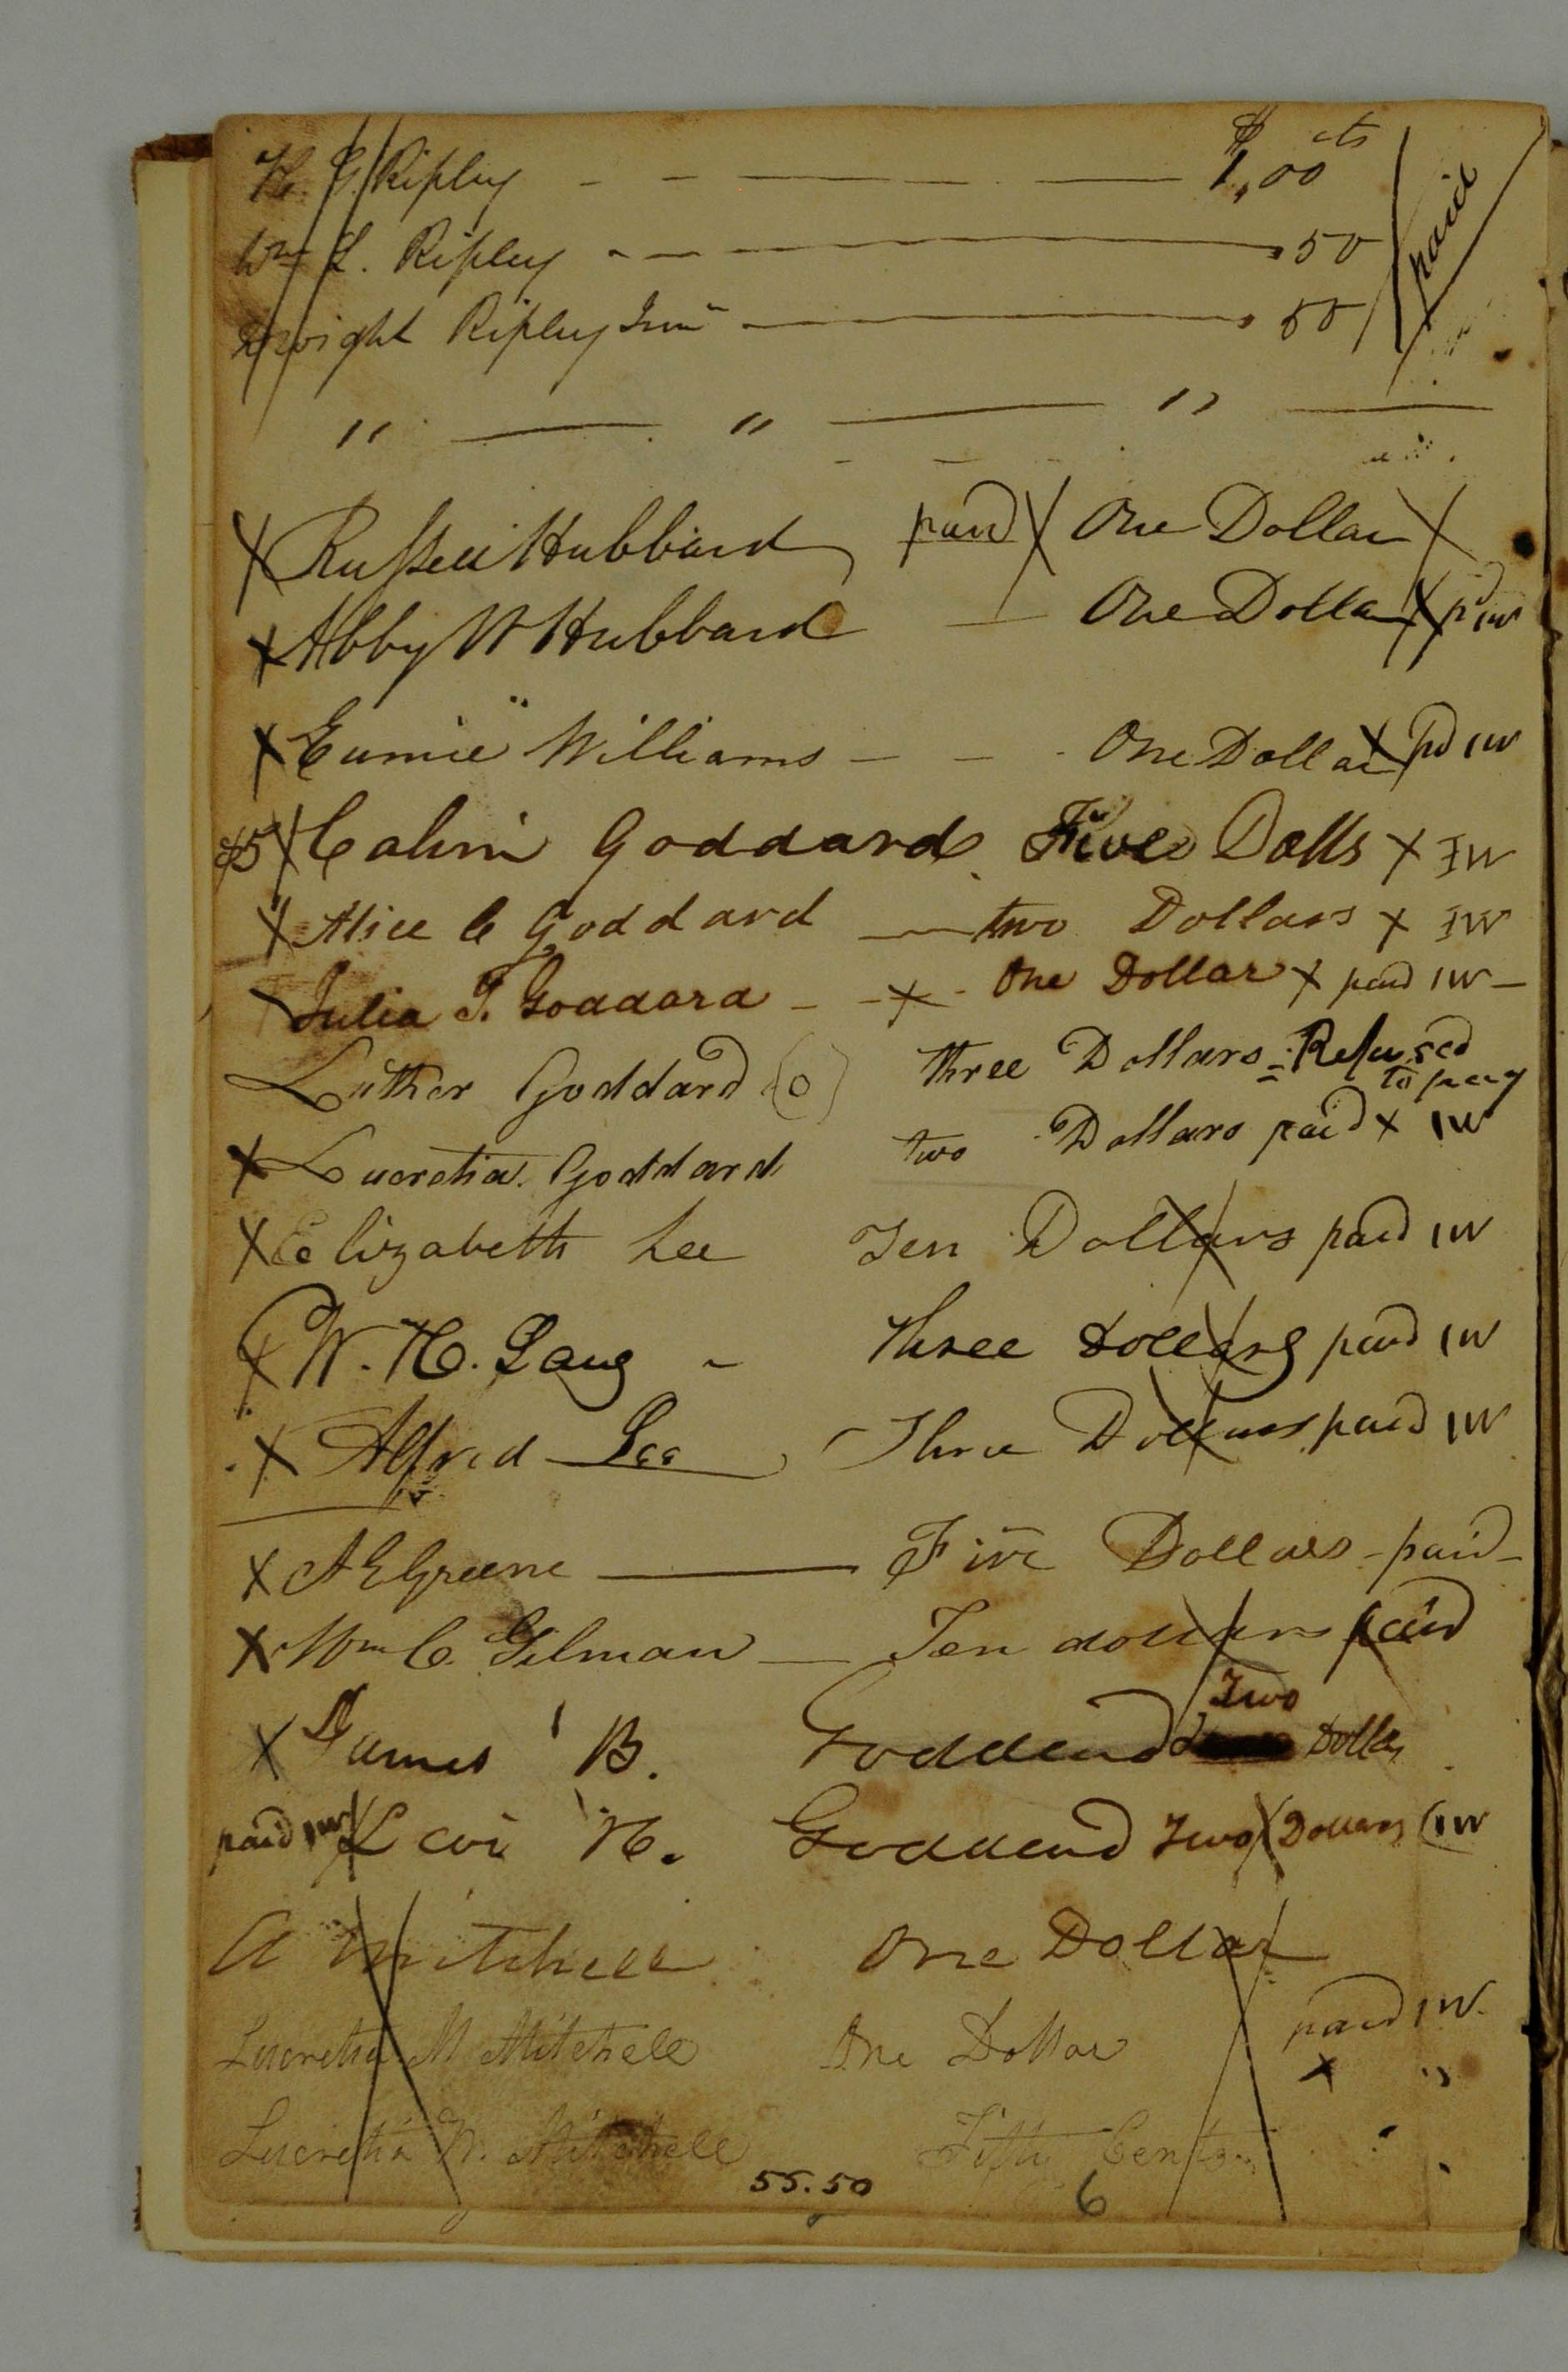 $ cts
H. G. Ripley - - — — 1,00
Wm L. Ripley - - — 50 paid
Dwight Ripley Junr — 50
" — " — " —
X Russell Hubbard paid X One Dollar X
X Abby W Hubbard — One Dollar X pd IW
X Eunice Williams - - - One Dollar X pd IW
$5 X Calvin Goddard. Five Dolls X IW
X Alice C Goddard — two Dollars X IW
Julia T. Goddard - - X - One Dollar X paid IW -
Luther Goddard (o) three Dollars = Refused
To pay
X Lucretia Goddard two Dollars paid X IW
X Elizabeth Lee Ten Dollars paid IW
X W. H. Lang - three dollars paid IW
X Alfred Lee Three Dollars paid IW
X A E Greene — Five Dollars - paid -
X Wm C. Gilman — Ten dollars paid
Two
X James B. Goddard Dollars
paid IW X Levi H. Goddard Two Dollars IW
A Mitchell One Dollar
Lucretia M Mitchell One Dollar paid IW
X "
Lucretia W. Mitchell Fifty Cents
55.50
6